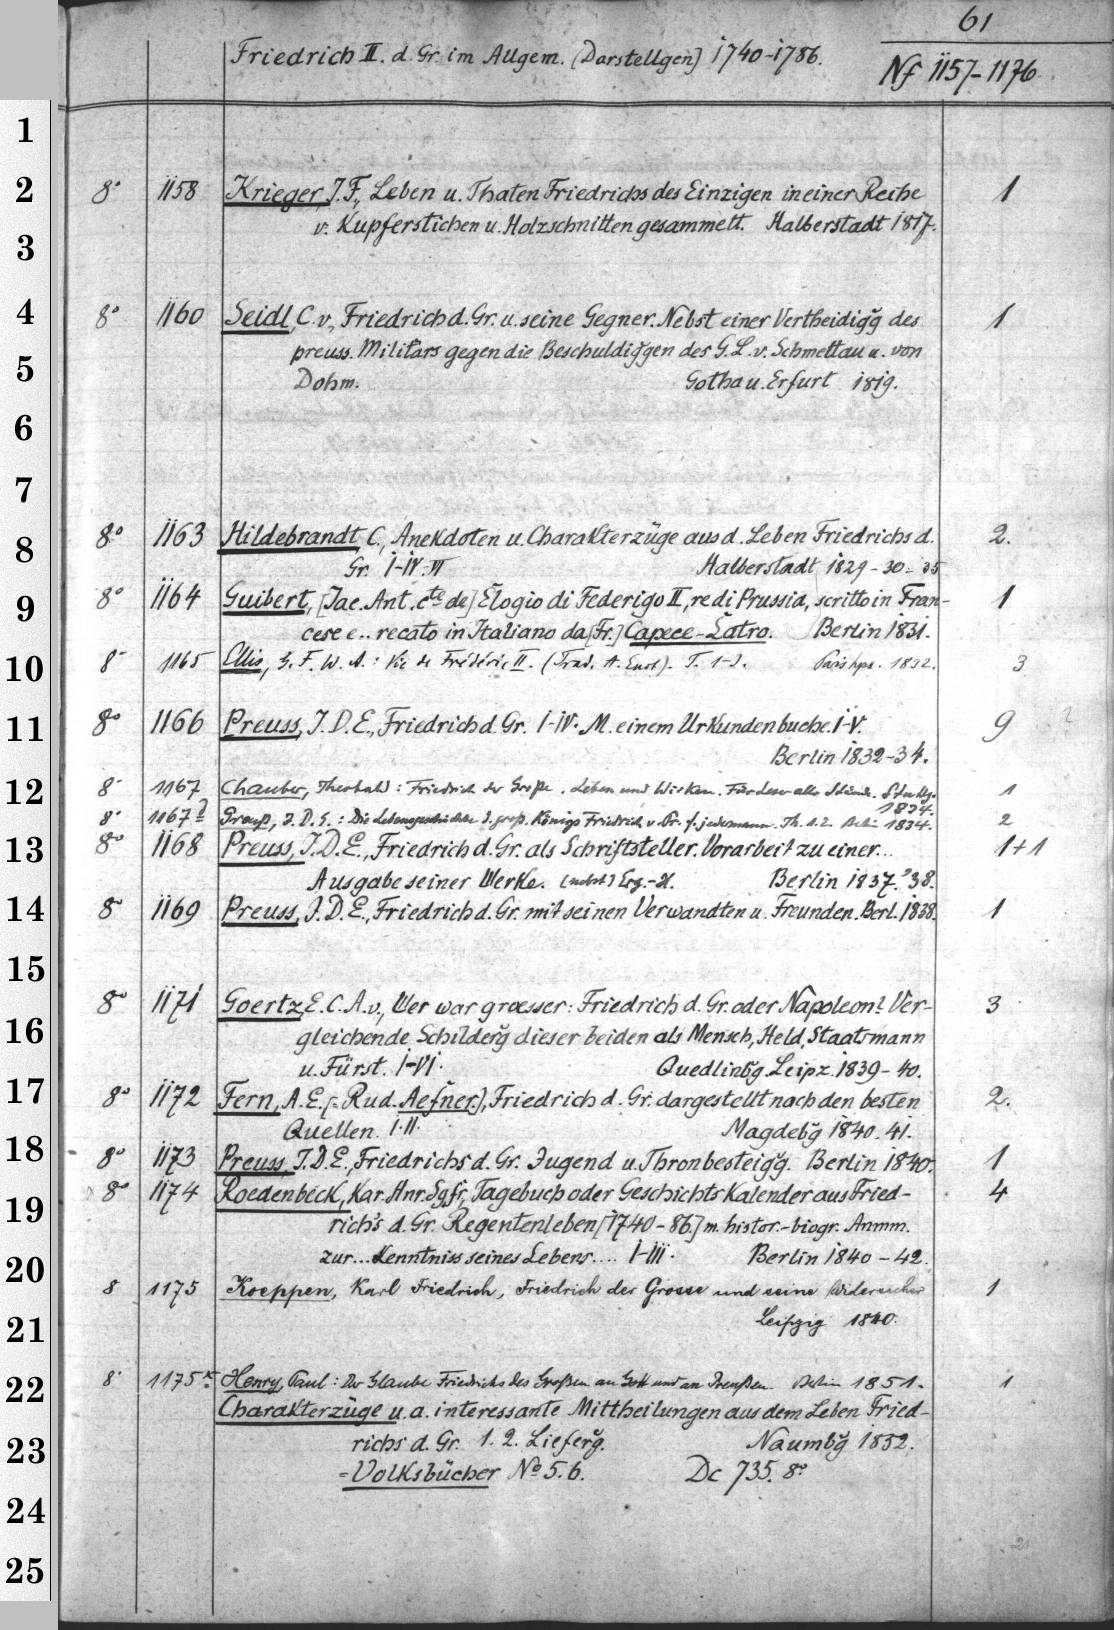 61
Friedrich II. d. Gr. im Allgem. (Darstellgen) 1740-1786.
Nf 1157-1176
1
2
8° 1158 Krieger, J. F., Leben u. Thaten Friedrichs des Einzigen in einer Reihe 1
v. Kupferstichen u. Holzschnitten gesammelt. Halberstadt 1817.
3
4
8° 1160 Seidl, C. v., Friedrich d. Gr. u. seine Gegner. Nebst einer Vertheidigg des 1
preuss. Militärs gegen die Beschuldiggen des G. L. v. Schmettau u. von
5
Dohm. Gotha u. Erfurt 1819.
6
7
8
8° 1163 Hildebrandt, C., Anekdoten u. Charakterzüge aus d. Leben Friedrichs d. 2.
Gr. I-IV. VI Halberstadt 1829-30-35
9
8° 1164 Guibert, [Jac. Ant. cte de] Elogio di Federigo II, re di Prussia, scritto in Fran- 1
cese e.. recato in Italiano da [Fr.] Capece-Latro. Berlin 1831.
10
8° 1165 Ellis, G. F. W. A.: Vie de Frédéric II. (Trad. A. ). T. 1-3. Paris 1832. 3
11
8° 1166 Preuss, J. D. E., Friedrich d. Gr. I-IV. M. einem Urkundenbuche. I-V. 9 ?
Berlin 1832-34.
12
8° 1167 Chauber, Theobald: Friedrich der Große. Leben und Wirken. Für Leser alle Stände. Stuttg. 1
1834.
8° 1167a Preuß, J. D. E.: Die Lebensgeschichte d. groß. Königs Friedrich v. Pr. f. jedermann. Th. 1.2. Berlin 1834. 2
13
8° 1168 Preuss, J. D. E., Friedrich d. Gr. als Schriftsteller. Vorarbeit zu einer... 1+1
Ausgabe seiner Werke. [nebst] Erg.-H. Berlin 1837. '38.
14
8° 1169 Preuss, J. D. E., Friedrich d. Gr. mit seinen Verwandten u. Freunden. Berl. 1838. 1
15
8° 1171 Goertz, E. C. A. v., Wer war groesser: Friedrich d. Gr. oder Napoleon? Ver- 3
16
gleichende Schilderg dieser beiden als Mensch, Held, Staatsmann
u. Fürst. I-VI. Quedlinbg. Leipz. 1839-40.
17
8° 1172 Fern, A. E. [= Rud. Aefner.], Friedrich d. Gr. dargestellt nach den besten 2.
Quellen. I. II. Magdebg 1840. 41.
18
8° 1173 Preuss, J. D. E., Friedrichs d. Gr. Jugend u. Thronbesteigg. Berlin 1840. 1
19
8° 1174 Roedenbeck, Kar. Hnr. Sgfr., Tagebuch oder Geschichtskalender aus Fried- 4
rich's d. Gr. Regentenleben [1740-86] m. histor.-biogr. Anmm.
20
zur... Kenntniss seines Lebens.... I-III. Berlin 1840-42.
8 1175 Koeppen, Karl Friedrich, Friedrich der Grosse und seine Widersacher 1
21
Leipzig 1840.
22
8° 1175a Henry, Paul: Der Glaube Friedrichs des Großen an Gott und an Preußen. Berlin 1851. 1
Charakterzüge u. a. interessante Mittheilungen aus dem Leben Fried-
23
richs d. Gr. 1. 2. Lieferg. Naumbg 1852.
= Volksbücher No 5. 6. Dc 735. 8°
24
25